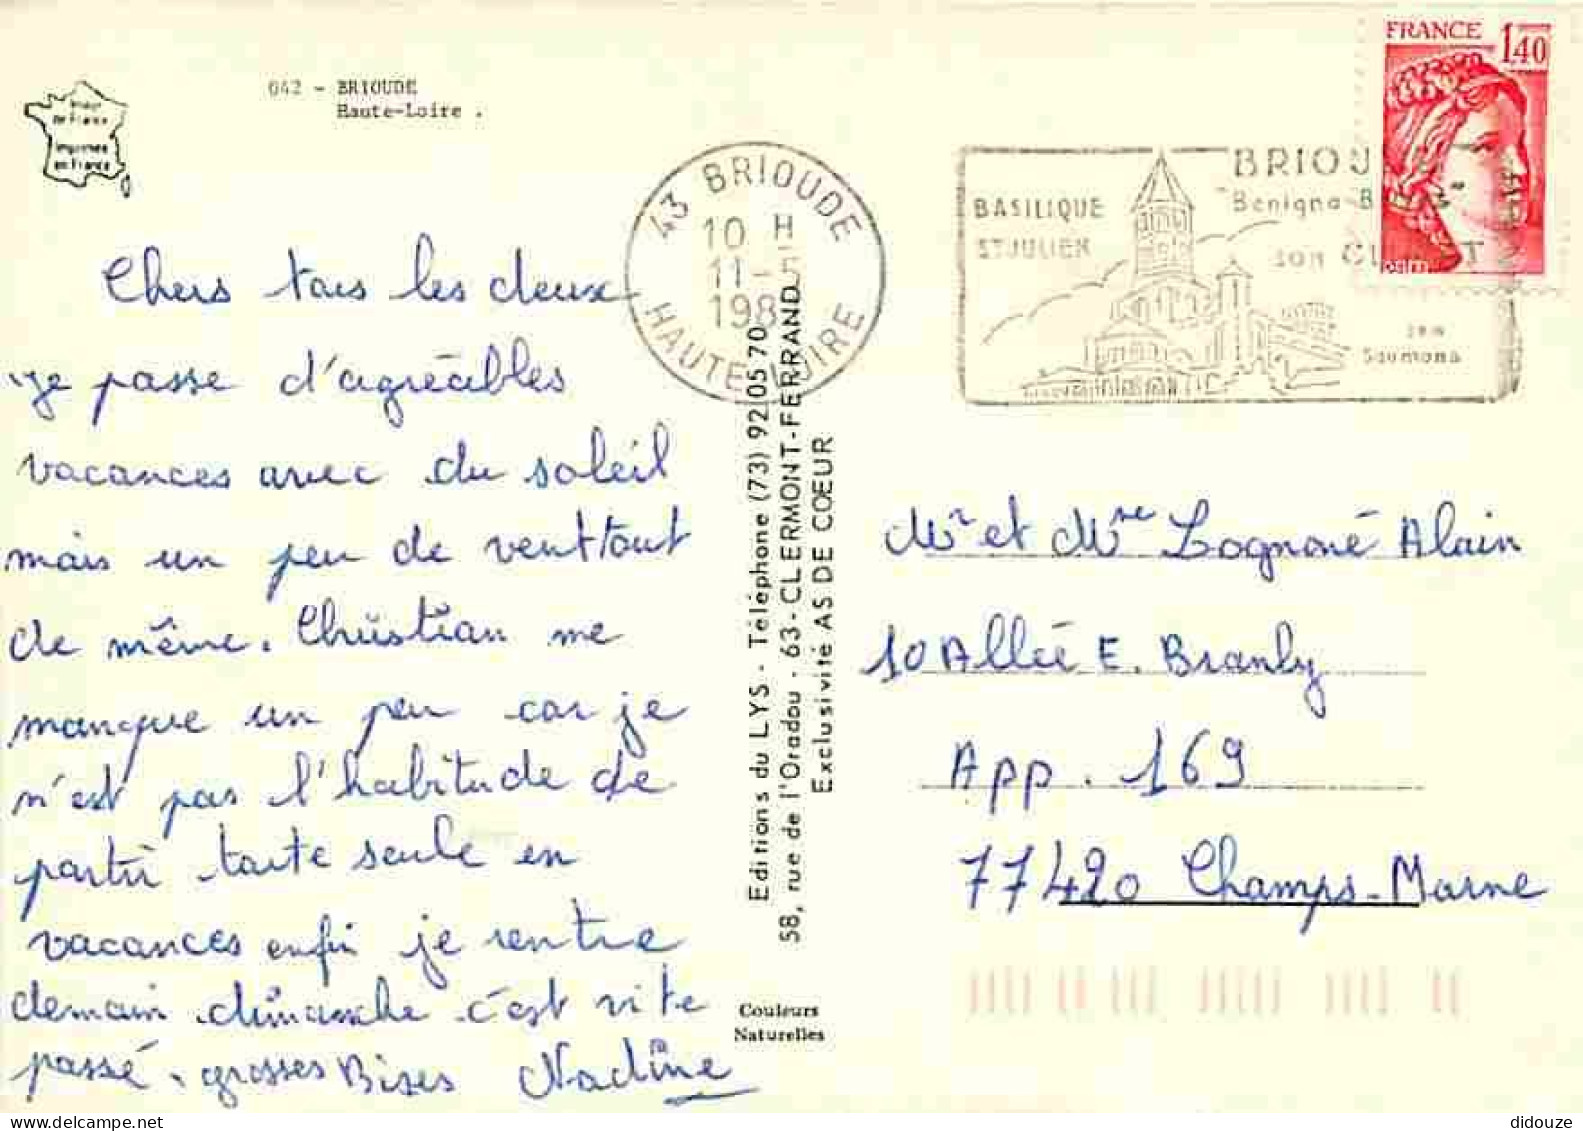 042 - BRIOUDE
Haute-Loire .
de France
Imprimée
en France
43 BRIOUDE
10 H
11-5
198
HAUTE-LOIRE
BASILIQUE
ST JULIEN
BRIOU
Benigna B
son
ses
Saumons
FRANCE 1,40
Chers tous les deux
je passe d'agréables
vacances avec du soleil
mais un peu de vent tout
de même. Christian me
manque un peu car je
n'est pas l'habitude de
partir toute seule en
vacances enfin je rentre
demain dimanche c'est vite
passé. grosses Bises Nadine
Editions du LYS - Téléphone (73) 92 05 70
58, rue de l'Oradou - 63-CLERMONT-FERRAND
Exclusivité AS DE CŒUR
Couleurs
Naturelles
Mr et Mme Lognoné Alain
10 Allée E. Branly
App. 169
77420 Champs-Marne
didouze